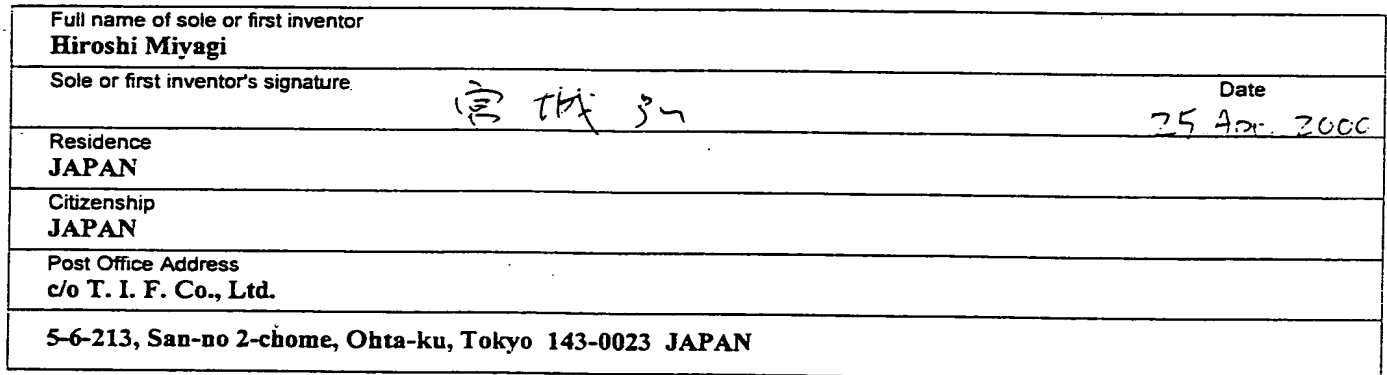 Full name of sole or first inventor
Hiroshi Miyagi
Sole or first inventor's signature
Date
宮城弘
25 Apr. 2000
Residence
JAPAN
Citizenship
JAPAN
Post Office Address
c/o T. I. F. Co., Ltd.
5-6-213, San-no 2-chome, Ohta-ku, Tokyo 143-0023 JAPAN